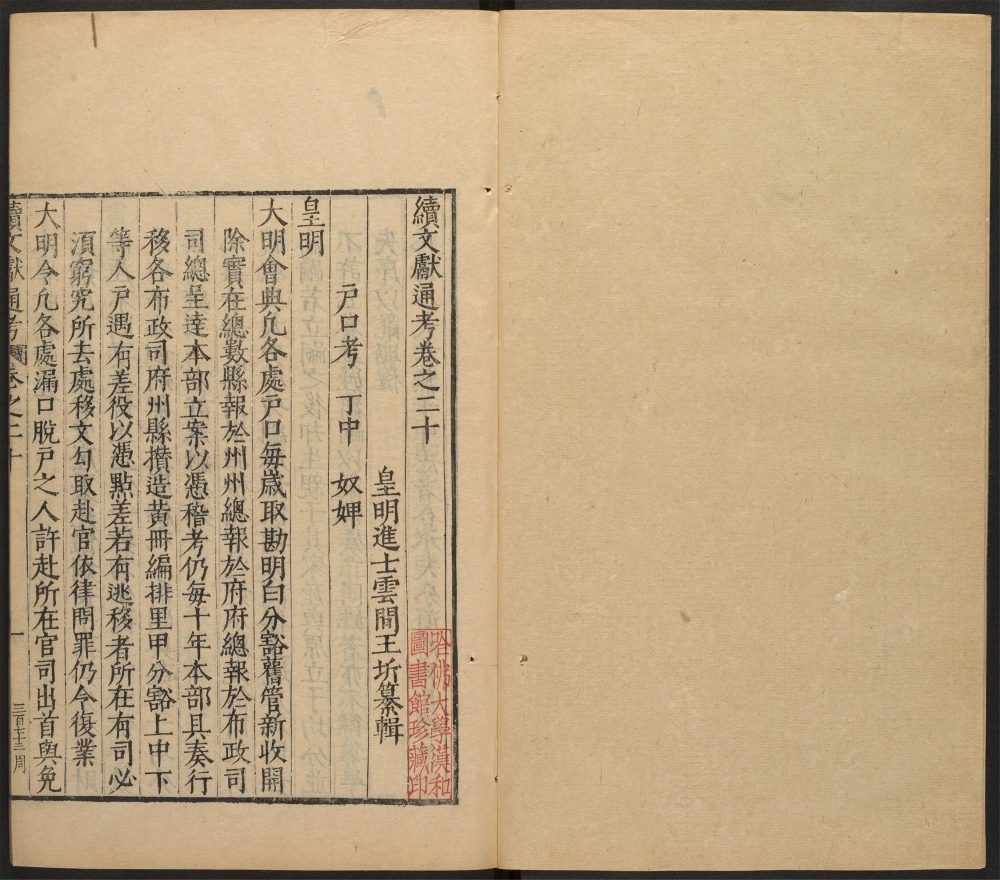 續文獻通考卷之二十
皇明進士雲間王圻纂輯
戶口考 丁中 奴婢
皇明
大明會典凢各處戸口每歲取勘明白分豁舊管新收開
除實在總數縣報於州州總報於府府總報於布政司
司總呈達本部立案以憑稽考仍每十年本部具奏行
移各布政司府州縣攅造黃冊編排里甲分豁上中下
等人戸遇有差役以憑㸃差若有逃移者所在有司必
湏窮究所去處移文勾取赴官依律問罪仍令復業
大明令凢各處漏口脫戸之人許赴所在官司出首與免
續文獻通考 卷之二十 一
哈佛大學漢和
圖書館珍藏印